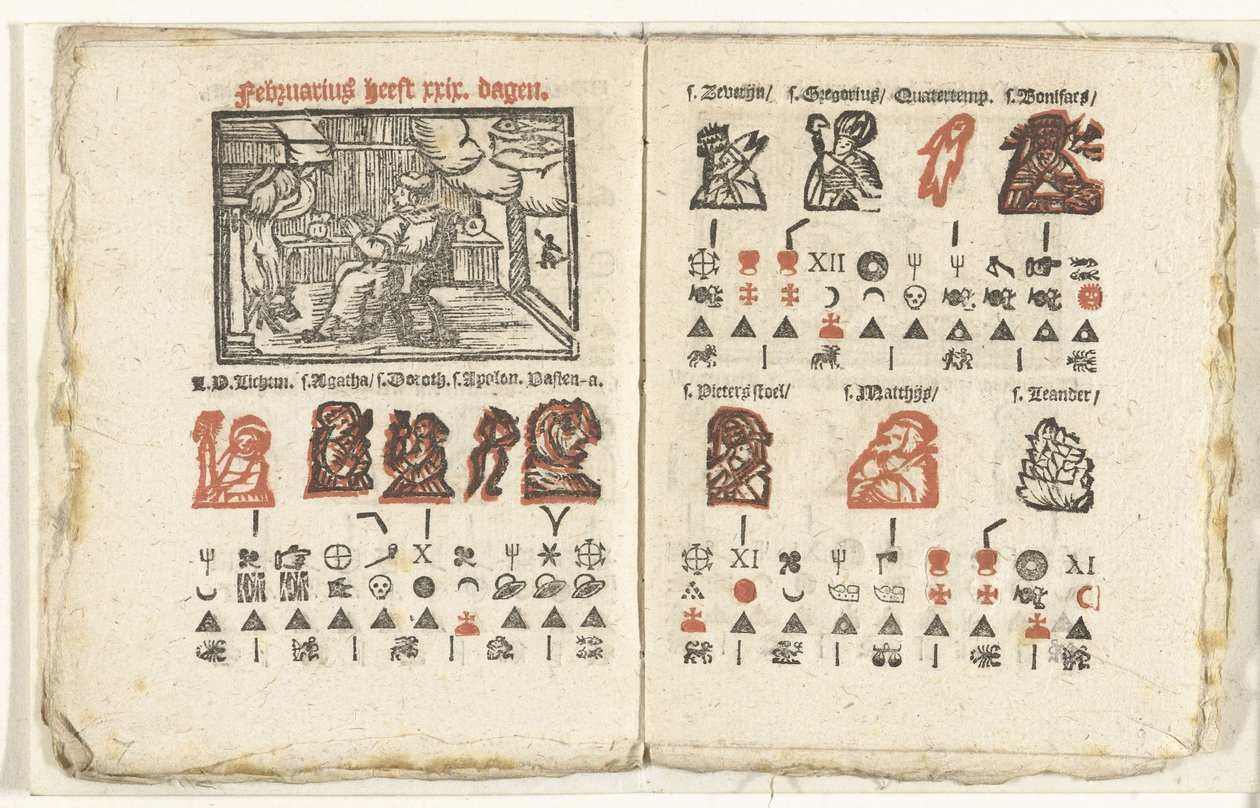 Februarius heeft xxix. dagen.
L.V.Lichtm. s.Agatha/ s.Doroth. s.Apolon. Vasten-a.
X
s. Zeverijn/ s. Gregorius/ Quatertemp. s. Bonifacs/
XII
s. Pieters stoel/ s. Matthijs/ s. Leander/
XI XI